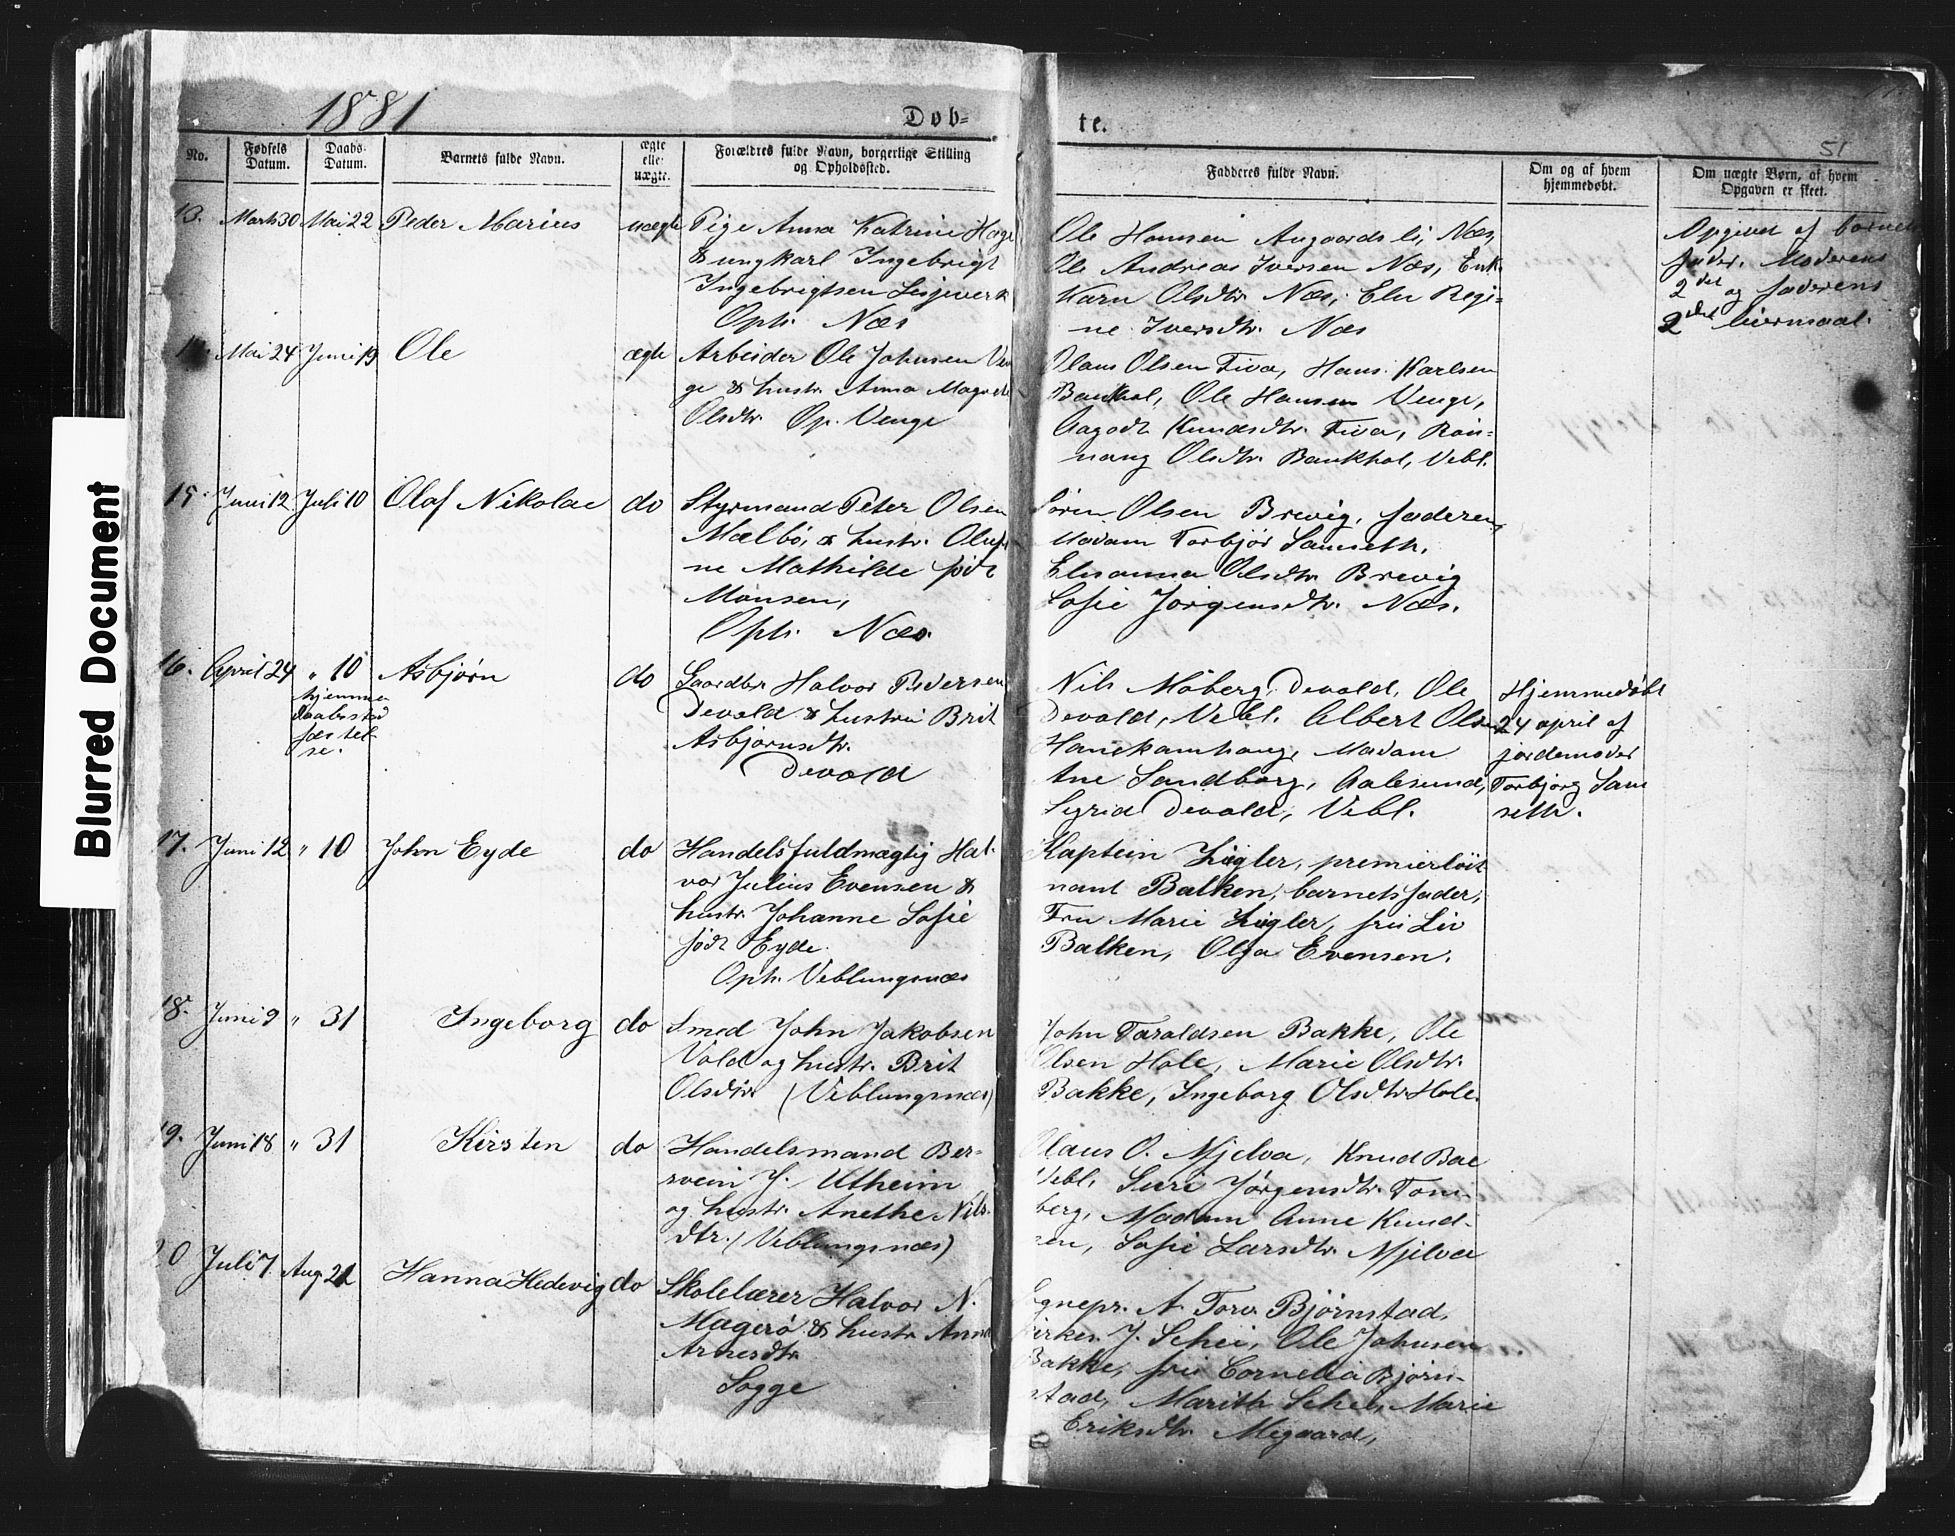 1881
Døb=
te.
51
No.
Fødsels Datum.
Daabs- Datum.
Barnets fulde Navn.
ægte eller uægte.
Forældres fulde Navn, borgerlige Stilling
og Opholdssted.
Fadderes fulde Navn.
Om og af hvem
hjemmedøbt.
Om uægte Børn, af hvem
Opgaven er skeet.
13. Marts 30 Mai 22 Peder Marius uægte Pige Anna Katrine Hage
& ungkarl Ingebrigt
Ingebrigtsen Lesjeverk
Oph. Næs
Ole Hansen Augaardsli, Næs,
Ole Andreas Iversen Næs, Enk.
Karn Olsdtr. Næs, Elen Regi=
ne Iversdtr. Næs
Opgivet af barnets
fader. Moderens
2det og faderens
2det leiermaal.
Mai 24 Juni 19 Ole ægte Arbeider Ole Johnsen Ven
ge & hustr. Anna Magrete
Olsdtr. Op. Venge
Olaus Olsen Fiva, Hans Karlsen
Baukhol, Ole Hansen Venge,
Aagodt Knudsdtr. Fiva, Røn=
naug Olsdtr. Baukhol, Vebl.
15. Juni 12 Juli 10 Olaf Nikolai do Styrmand Peter Olsen
Mælbö, & hustr. Olufi
ne Mathilde født
Monsen,
Oph. Næs.
Sören Olsen Brevig, faderen,
Madam Torbjør Samseth,
Elusanna Olsdtr. Brevig
Sofie Jörgensdtr. Næs.
16. April 24 " 10 Asbjørn do Gaardbr. Halvor Pedersen
Devold & hustru Brit
Asbjørnsdtr.
Devold
hjemme
daabsstad
fæstel
se.
Nils Möberg, Devold, Ole
Devold, Vebl. Albert Olsen
Hanekamhaug, Madam
Ane Sandborg, Aalesund,
Sigrid Devold, Vebl.
Hjemmedøbt
24 april af
jordemoder
Torbjørg Sam
seth.
17. Juni 12 " 10 John Eyde do Handelsfuldmægtig Hal-
vor Julius Evensen &
hustr. Johanne Sofie
født Eyde.
Oph. Veblungsnæs
Kaptein Ziegler, premierlöit
nant Balken, barnets fader,
Fru Marie Ziegler, frü Liv
Balken, Olga Evensen.
18. Juni 9 " 31 Ingeborg do Smed John Jakobsen
Vold og hustr. Brit
Olsdtr. (Veblungsnæs)
John Taraldsen Bakke, Ole
Olsen Hole, Marie Olsdtr.
Bakke, Ingeborg Olsdtr. Hole.
19. Juni 18 " 31 Kirsten do Handelsmand Ber-
svein J. Utheim
og hustr. Anethe Nils-
dtr. (Veblungsnæs)
Claus O. Mjelva, Knud Bae
Vebl, Siri Jørgensdtr. Tom-
berg, Madam Anne Knud-
sen, Sofie Larsdtr. Mjelva
20 Juli 7 Aug 21 Hanna Hedevig do Skolelærer Halvor N.
Magerö & hustr. Anne
Arnesdtr.
Sogge
Sognepr. N. Torv. Bjørnstad,
kirkes. J. Schei, Ole Johnsen
Bakke, frü Cornelia Bjørn-
stad, Marith Schei, Marie
Eriksdtr. Megaard,
Blurred Document